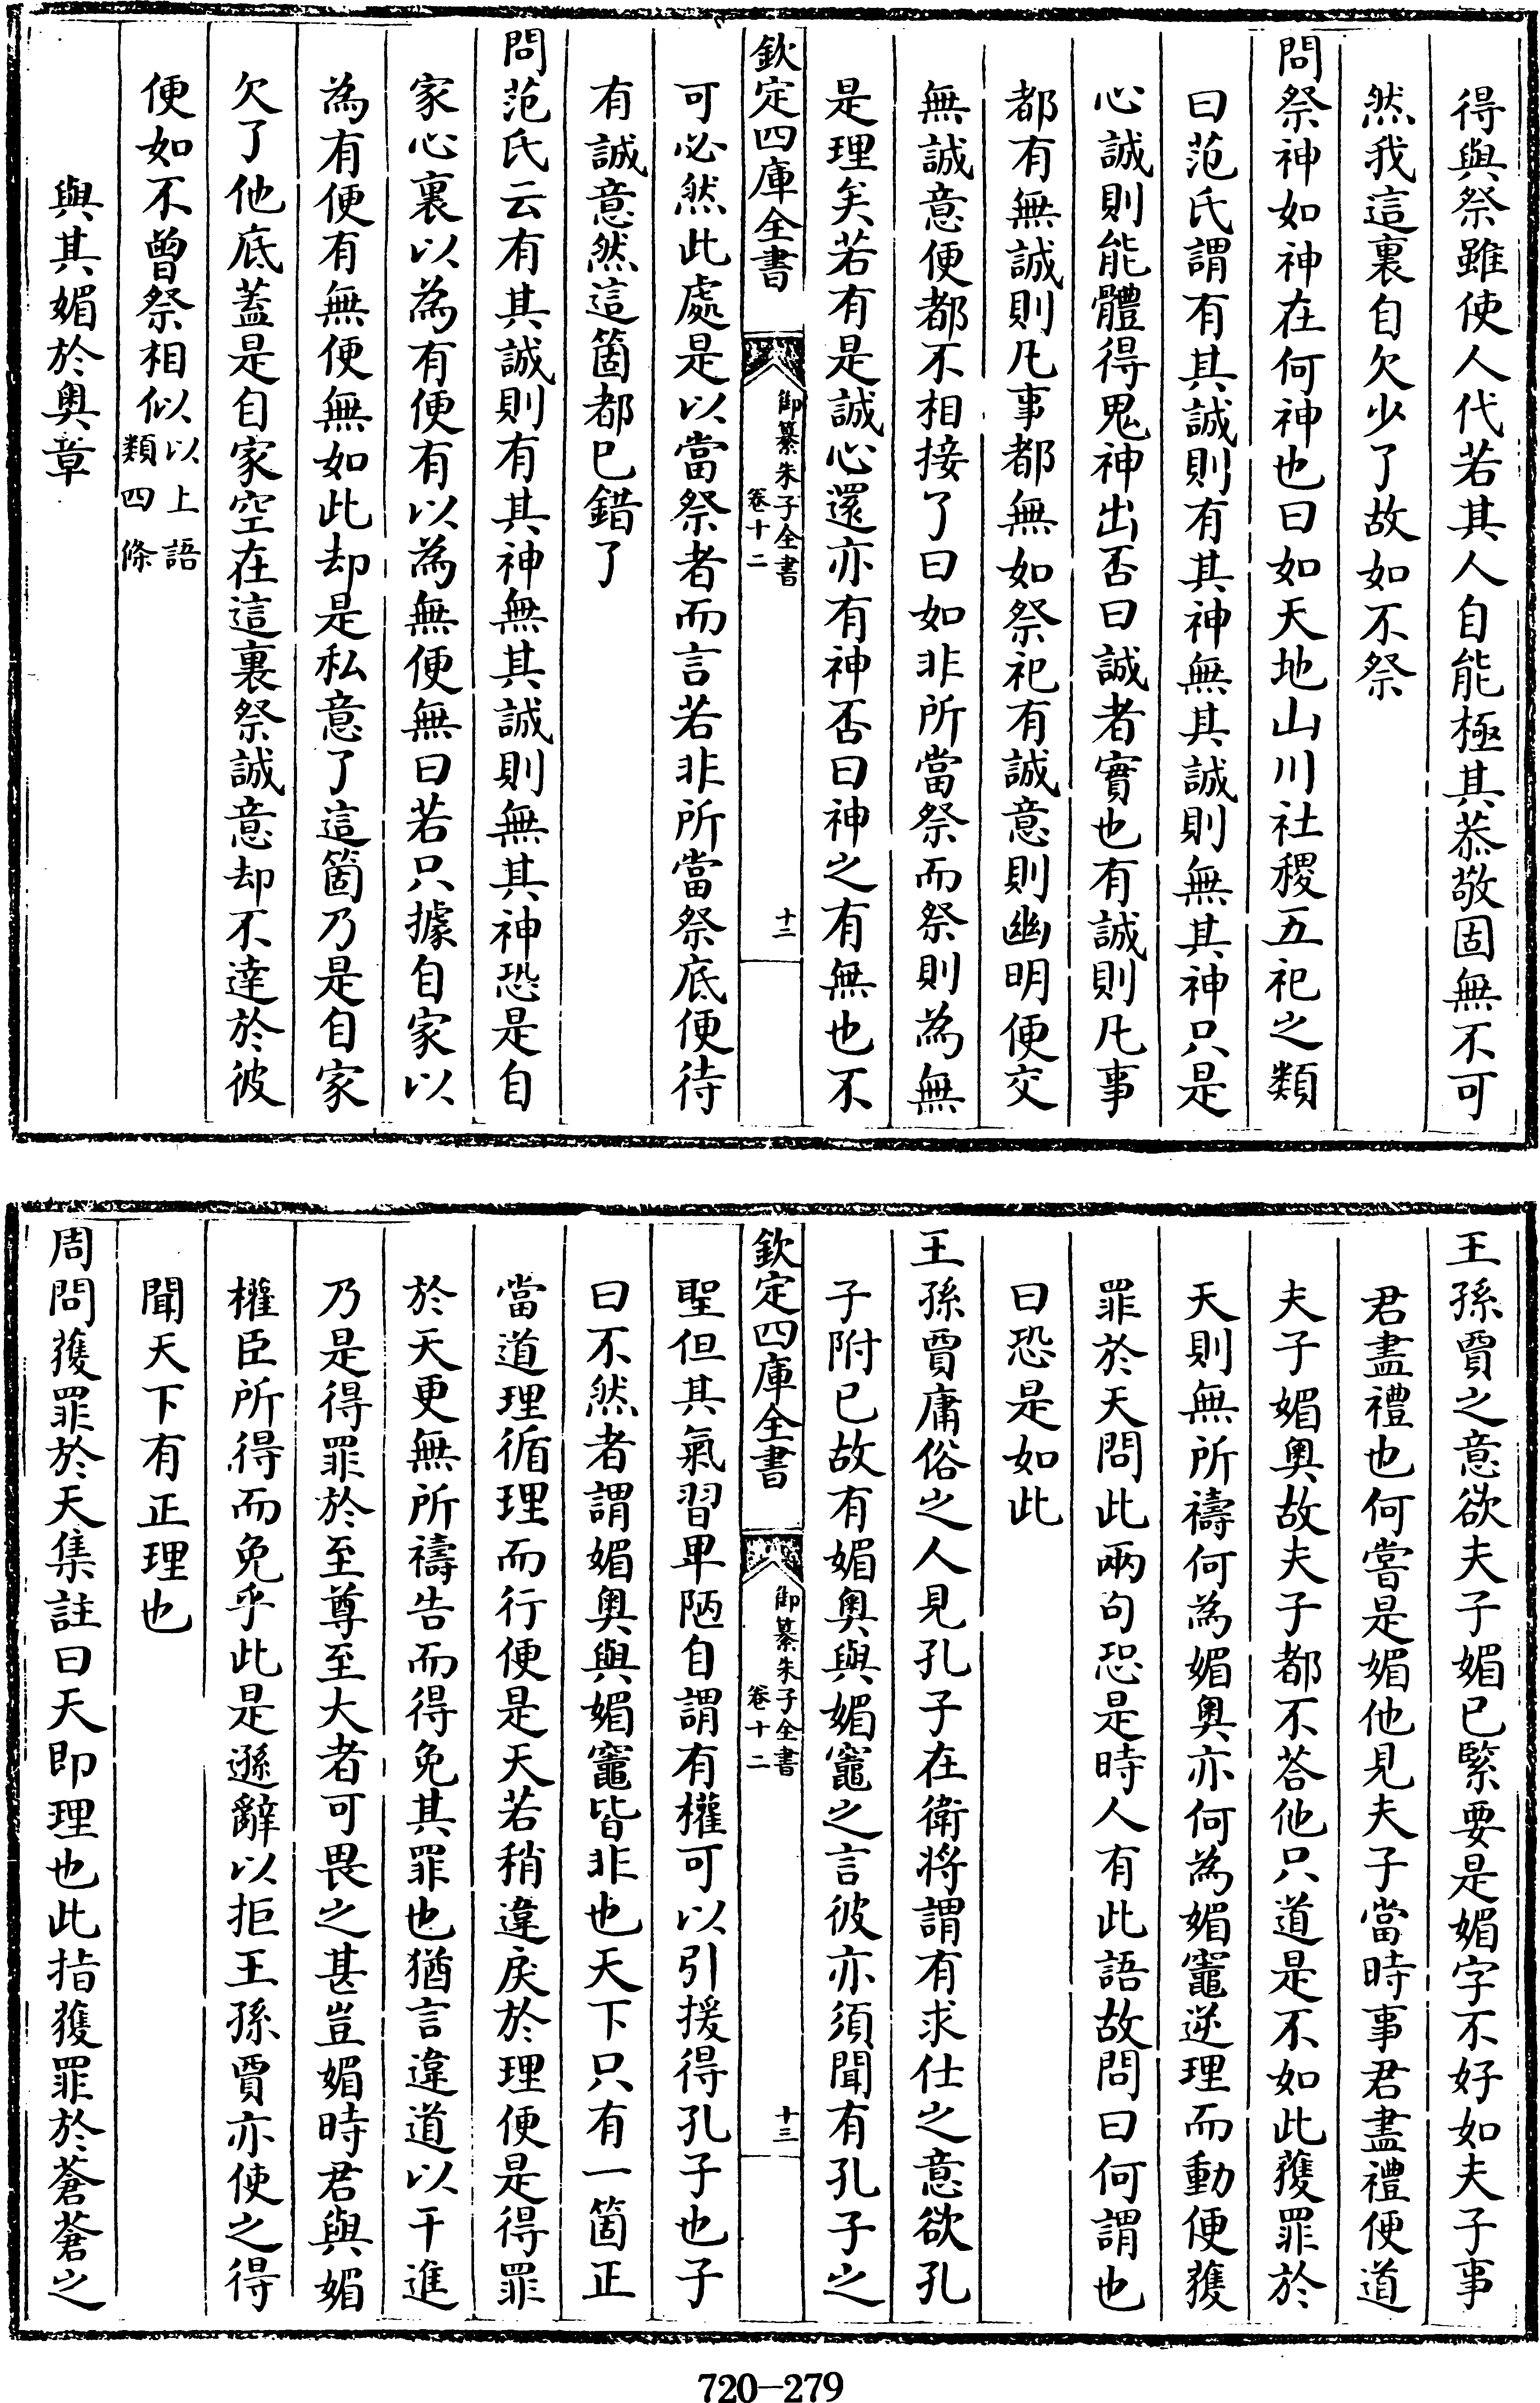 得與祭雖使人代若其人自能極其恭敬固無不可
然我這裏自欠少了故如不祭
問祭神如神在何神也曰如天地山川社稷五祀之類
曰范氏謂有其誠則有其神無其誠則無其神只是
心誠則能體得鬼神出否曰誠者實也有誠則凡事
都有無誠則凡事都無如祭祀有誠意則幽明便交
無誠意便都不相接了曰如非所當祭而祭則為無
是理矣若有是誠心還亦有神否曰神之有無也不
欽定四庫全書
御纂朱子全書
卷十二
十二
可必然此處是以當祭者而言若非所當祭底便待
有誠意然這箇都已錯了
問范氏云有其誠則有其神無其誠則無其神恐是自
家心裏以為有便有以為無便無曰若只據自家以
為有便有無便無如此却是私意了這箇乃是自家
欠了他底蓋是自家空在這裏祭誠意却不達於彼
便如不曾祭相似以上語類四條
與其媚於奧章
王孫賈之意欲夫子媚已緊要是媚字不好如夫子事
君盡禮也何嘗是媚他見夫子當時事君盡禮便道
夫子媚奧故夫子都不荅他只道是不如此獲罪於
天則無所禱何為媚奧亦何為媚竈逆理而動便獲
罪於天問此兩句恐是時人有此語故問曰何謂也
曰恐是如此
王孫賈庸俗之人見孔子在衛將謂有求仕之意欲孔
子附已故有媚奧與媚竈之言彼亦須聞有孔子之
欽定四庫全書
御纂朱子全書
卷十二
十三
聖但其氣習卑陋自謂有權可以引援得孔子也子
曰不然者謂媚奧與媚竈皆非也天下只有一箇正
當道理循理而行便是天若稍違戾於理便是得罪
於天更無所禱告而得免其罪也猶言違道以干進
乃是得罪於至尊至大者可畏之甚豈媚時君與媚
權臣所得而免乎此是遜辭以拒王孫賈亦使之得
聞天下有正理也
周問獲罪於天集註曰天即理也此指獲罪於蒼蒼之
720-279